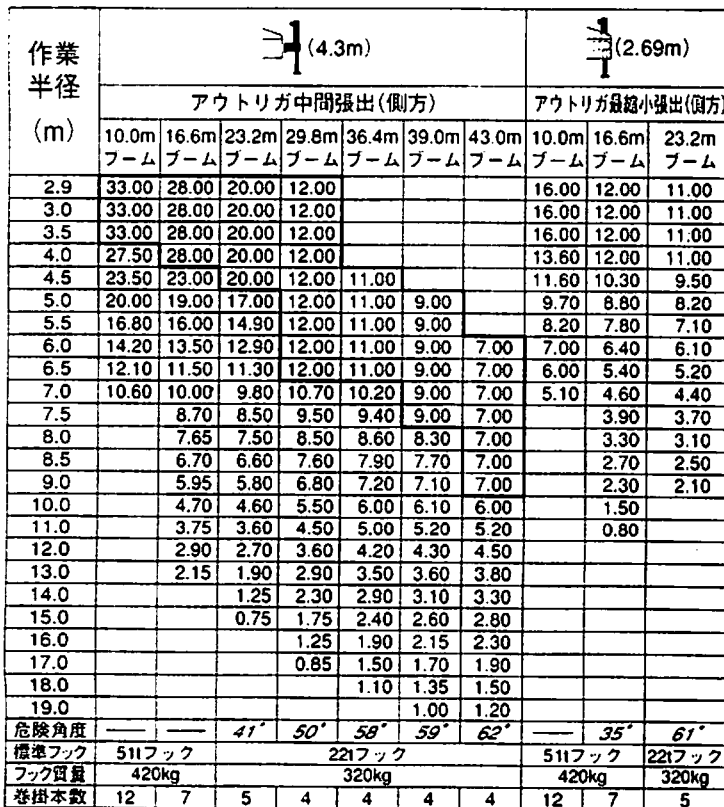 作業半径(m)
(4.3m) (2.69m)
アウトリガ中間張出(側方) アウトリガ最縮小張出(側方)
10.0mブーム 16.6mブーム 23.2mブーム 29.8mブーム 36.4mブーム 39.0mブーム 43.0mブーム 10.0mブーム 16.6mブーム 23.2mブーム
2.9 33.00 28.00 20.00 12.00 16.00 12.00 11.00
3.0 33.00 28.00 20.00 12.00 16.00 12.00 11.00
3.5 33.00 28.00 20.00 12.00 16.00 12.00 11.00
4.0 27.50 28.00 20.00 12.00 13.60 12.00 11.00
4.5 23.50 23.00 20.00 12.00 11.00 11.60 10.30 9.50
5.0 20.00 19.00 17.00 12.00 11.00 9.00 9.70 8.80 8.20
5.5 16.80 16.00 14.90 12.00 11.00 9.00 8.20 7.80 7.10
6.0 14.20 13.50 12.90 12.00 11.00 9.00 7.00 7.00 6.40 6.10
6.5 12.10 11.50 11.30 12.00 11.00 9.00 7.00 6.00 5.40 5.20
7.0 10.60 10.00 9.80 10.70 10.20 9.00 7.00 5.10 4.60 4.40
7.5 8.70 8.50 9.50 9.40 9.00 7.00 3.90 3.70
8.0 7.65 7.50 8.50 8.60 8.30 7.00 3.30 3.10
8.5 6.70 6.60 7.60 7.90 7.70 7.00 2.70 2.50
9.0 5.95 5.80 6.80 7.20 7.10 7.00 2.30 2.10
10.0 4.70 4.60 5.50 6.00 6.10 6.00 1.50
11.0 3.75 3.60 4.50 5.00 5.20 5.20 0.80
12.0 2.90 2.70 3.60 4.20 4.30 4.50
13.0 2.15 1.90 2.90 3.50 3.60 3.80
14.0 1.25 2.30 2.90 3.10 3.30
15.0 0.75 1.75 2.40 2.60 2.80
16.0 1.25 1.90 2.15 2.30
17.0 0.85 1.50 1.70 1.90
18.0 1.10 1.35 1.50
19.0 1.00 1.20
危険角度 — — 41° 50° 58° 59° 62° — 35° 61°
標準フック 51tフック 22tフック 51tフック 22tフック
フック質量 420kg 320kg 420kg 320kg
巻掛本数 12 7 5 4 4 4 4 12 7 5